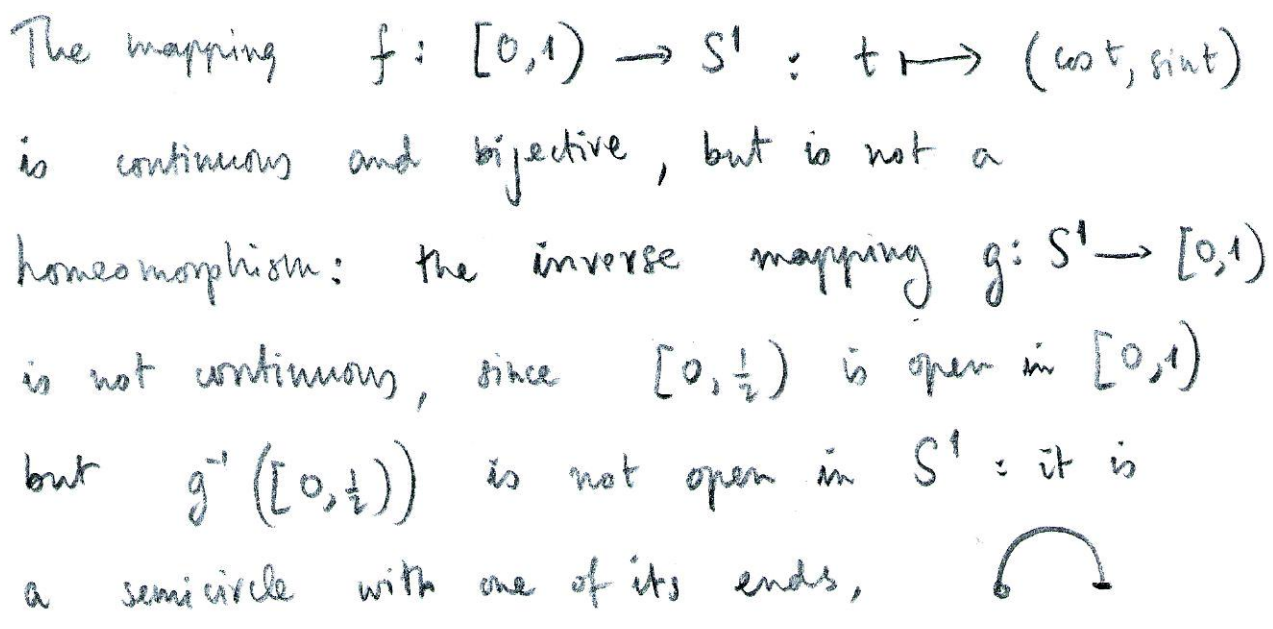 The mapping f : [0,1) → S¹ : t ↦ (cos t, sin t)
is continuous and bijective, but is not a
homeomorphism: the inverse mapping g: S¹ → [0,1)
is not continuous, since [0, ½) is open in [0,1)
but g⁻¹([0,½)) is not open in S¹ : it is
a semicircle with one of its ends,